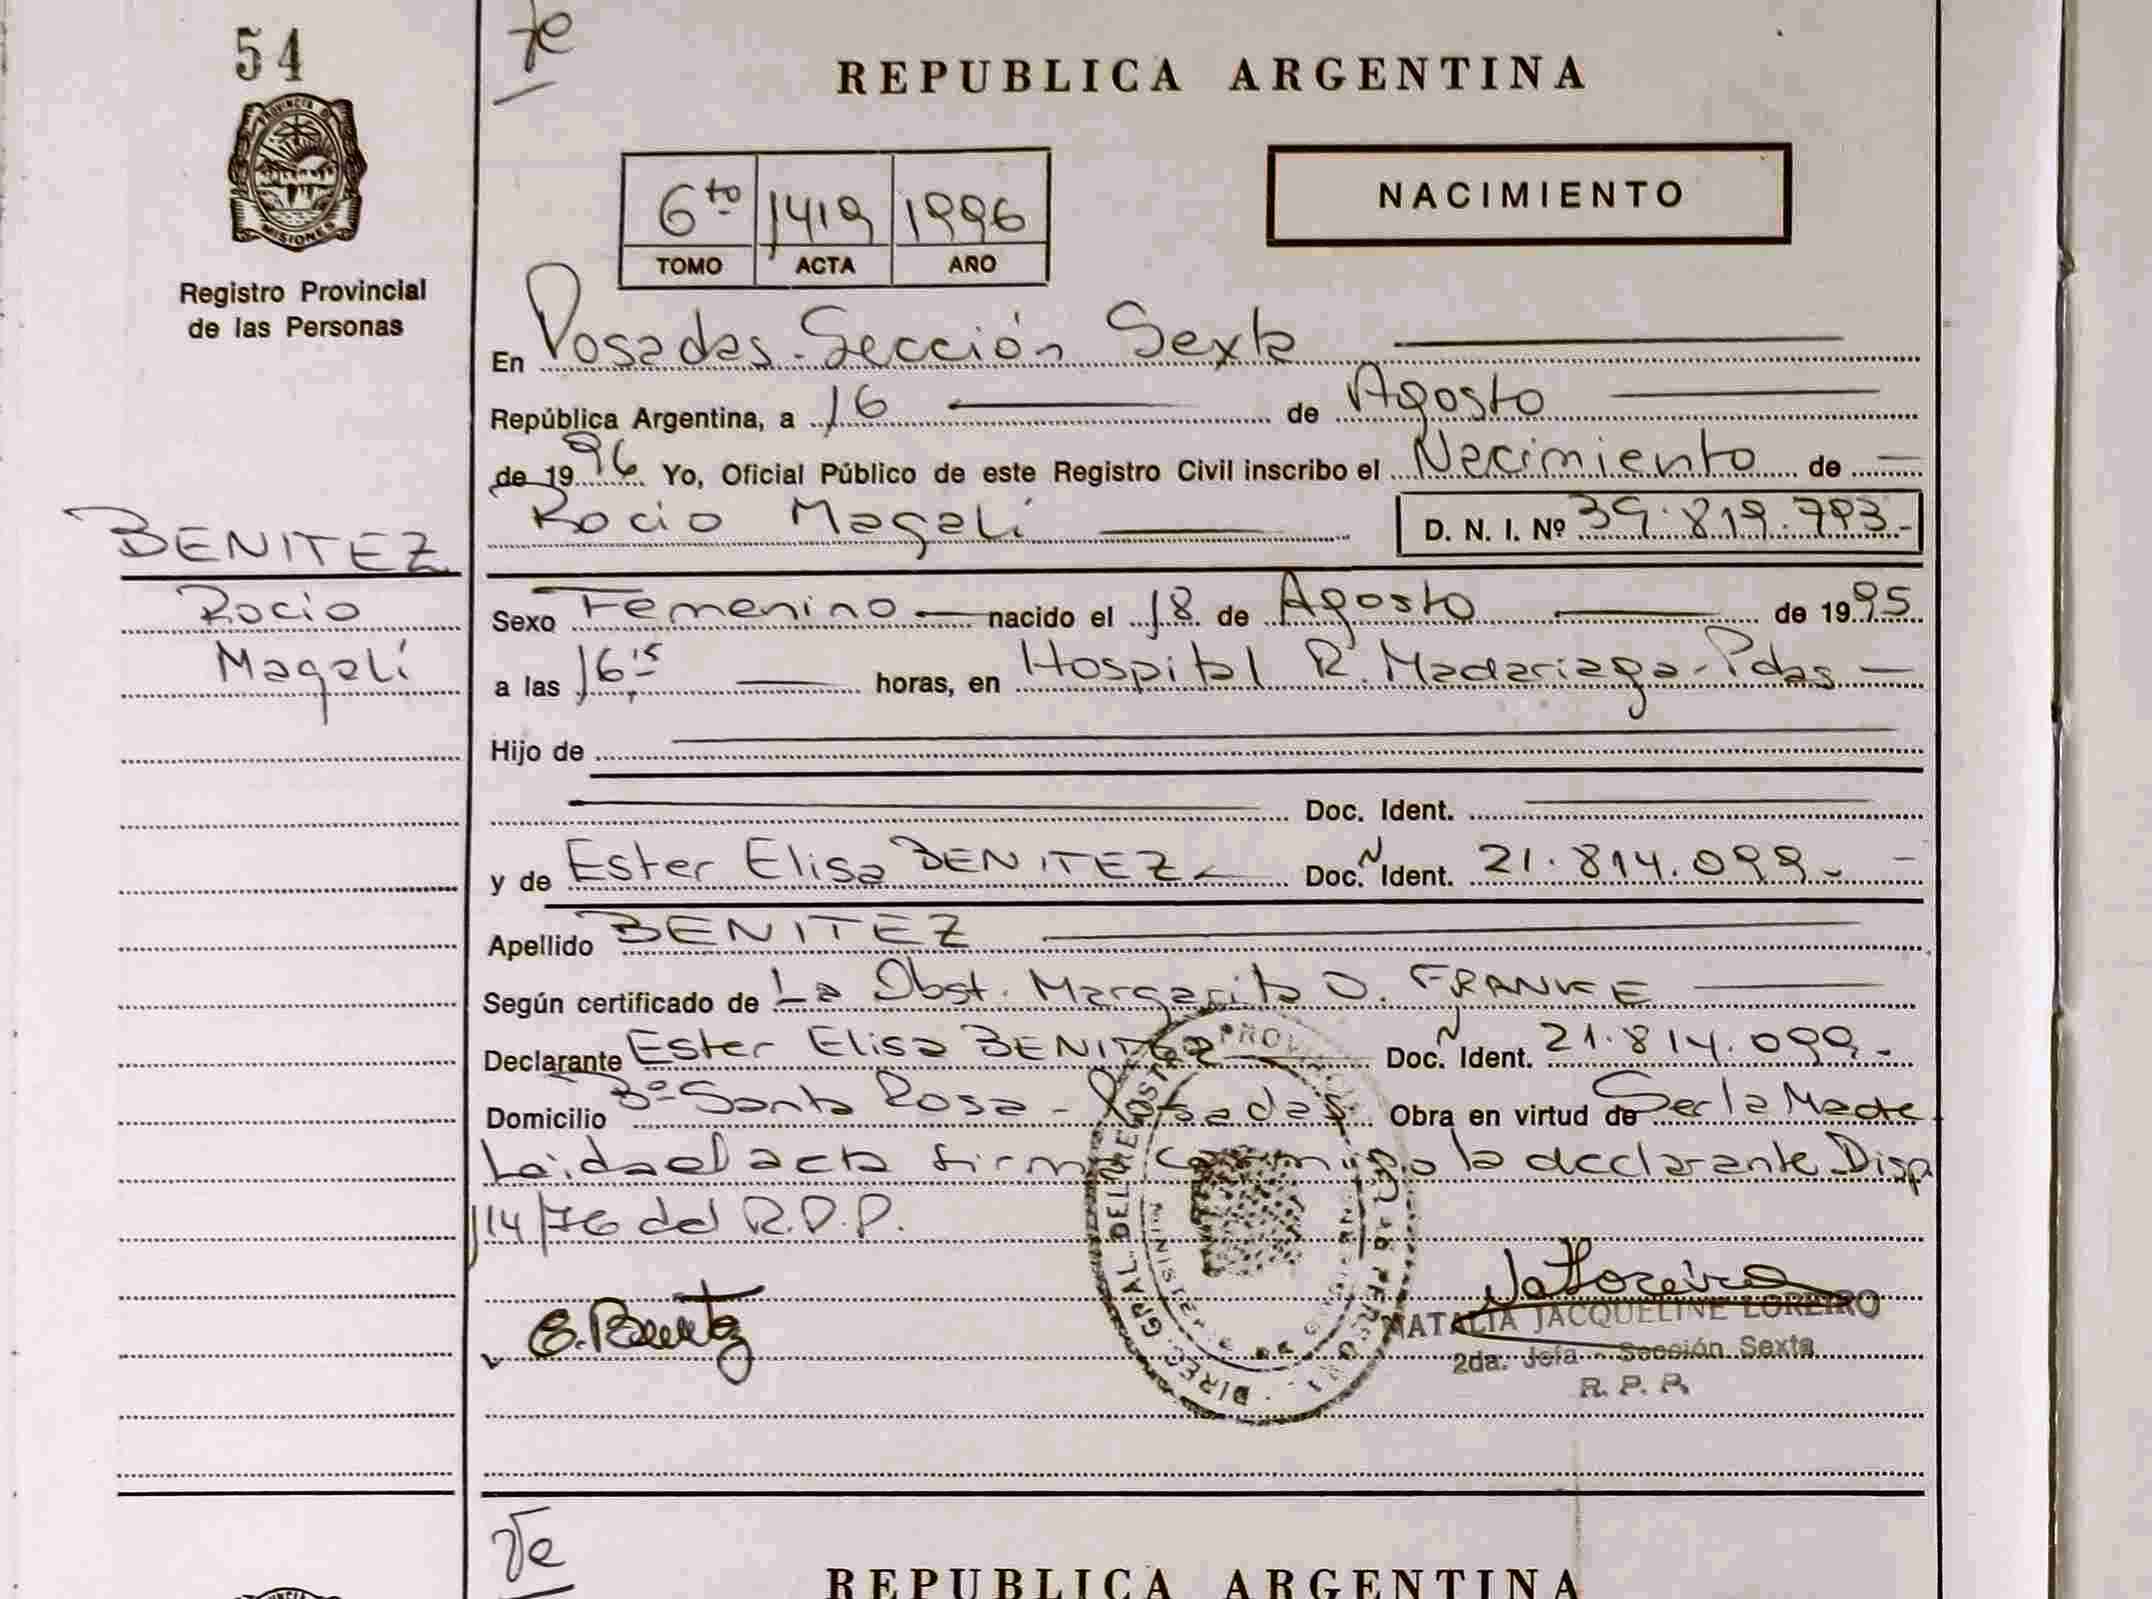 54
Te
REPUBLICA ARGENTINA
PROVINCIA DE
MISIONES
Registro Provincial
de las Personas
6to 1419 1996
TOMO ACTA AÑO
NACIMIENTO
En Posadas. Sección Sexta
República Argentina, a 16 de Agosto
de 1996 Yo, Oficial Público de este Registro Civil inscribo el Nacimiento de
Rocio Magalí D. N. I. Nº 39.819.793.-
BENITEZ
Rocio
Magalí
Sexo Femenino nacido el 18 de Agosto de 1995
a las 16,15 horas, en Hospital R. Madariaga-Pdas
Hijo de
Doc. Ident.
y de Ester Elisa BENITEZ Doc. N Ident. 21.814.099.-
Apellido BENITEZ
Según certificado de La Obst. Margarita O. FRANKE
Declarante Ester Elisa BENITEZ Doc. N Ident. 21.814.099.-
Domicilio Bº Santa Rosa - Posadas Obra en virtud de Ser la Madre
Leida el acta firma conmigo la declarante Disp
114/76 del R.P.P.
E. Benitez
NATALIA JACQUELINE LOREIRO
2da. Jefa - Sección Sexta
R. P. P.
Te
REPUBLICA ARGENTINA